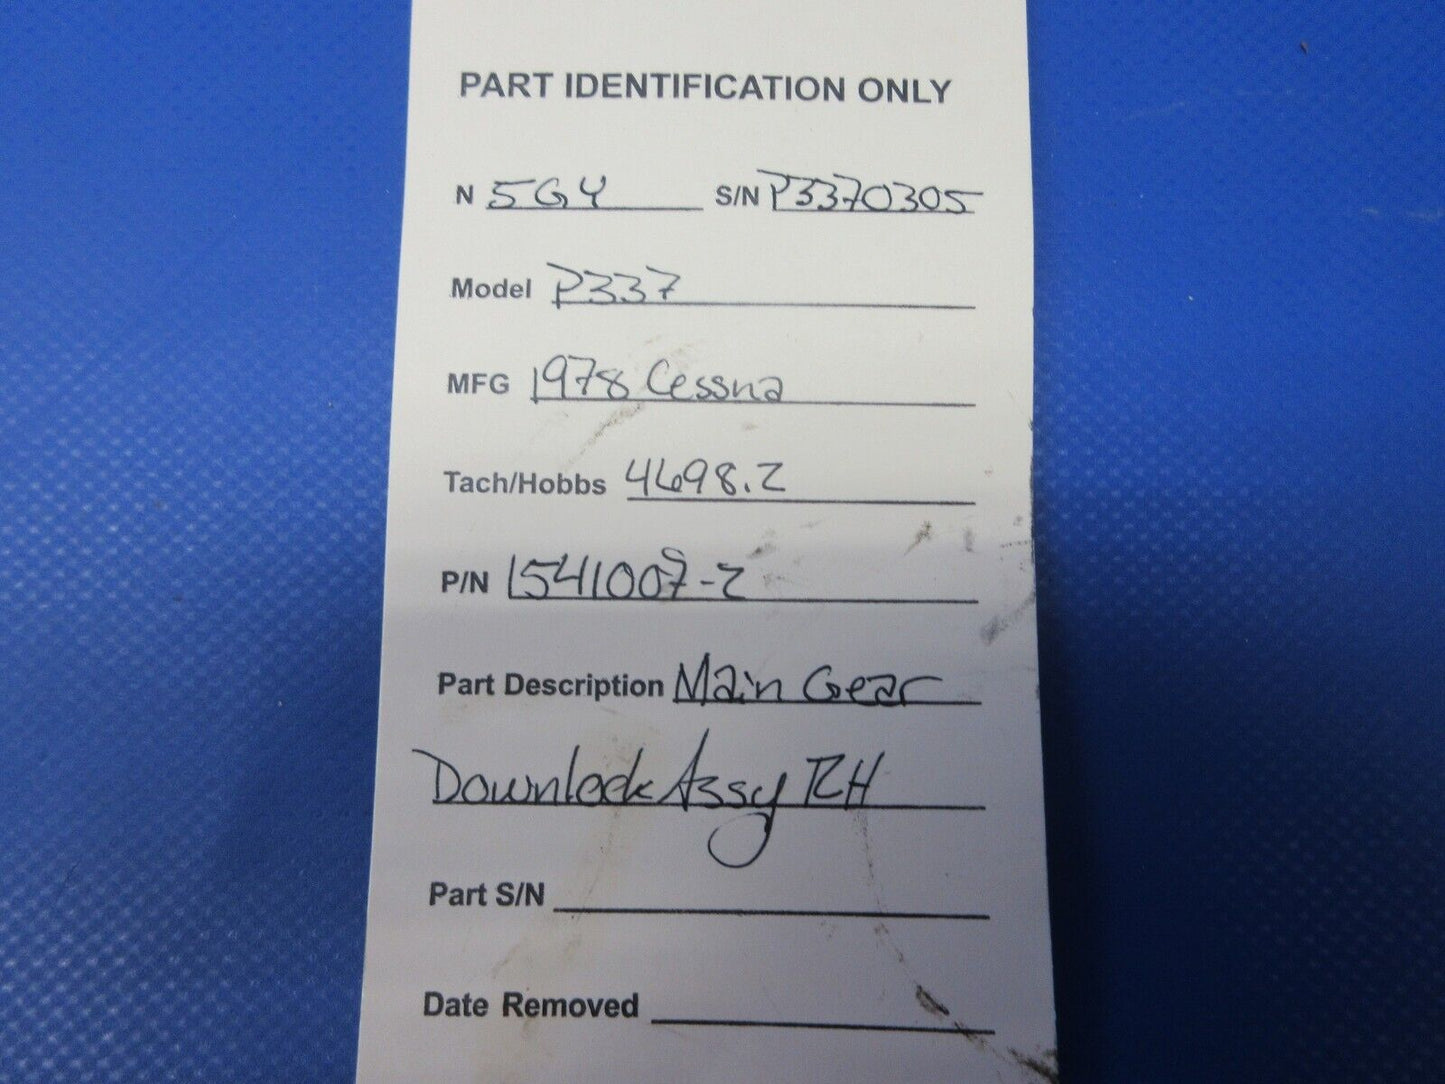 PART IDENTIFICATION ONLY
N 5GY S/N P3370305
Model P337
MFG 1978 Cessna
Tach/Hobbs 4698.2
P/N 1541009-2
Part Description Main Gear
Downlock Assy RH
Part S/N
Date Removed